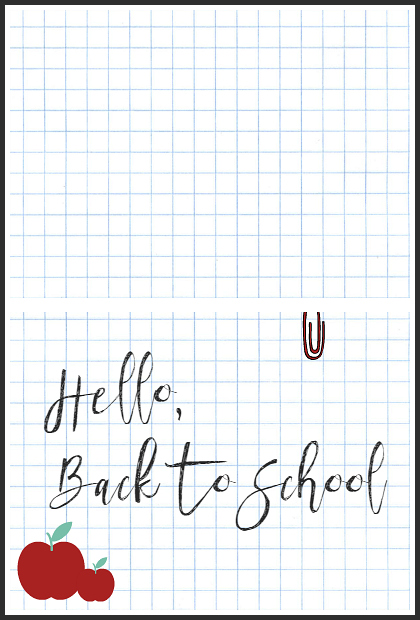 Hello,
Back to School